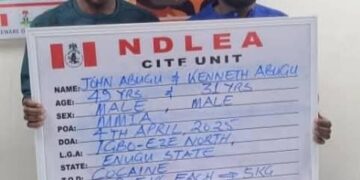 NDLEA
CITF UNIT
NAME: JOHN ABUGU & KENNETH ABUGU
AGE: 49 YRS & 31 YRS
SEX: MALE, MALE
POA: MMIA
DOA: 4TH APRIL, 2025
L.G.A: IGBO-EZE NORTH,
ENUGU STATE
COCAINE
EACH → 5KG